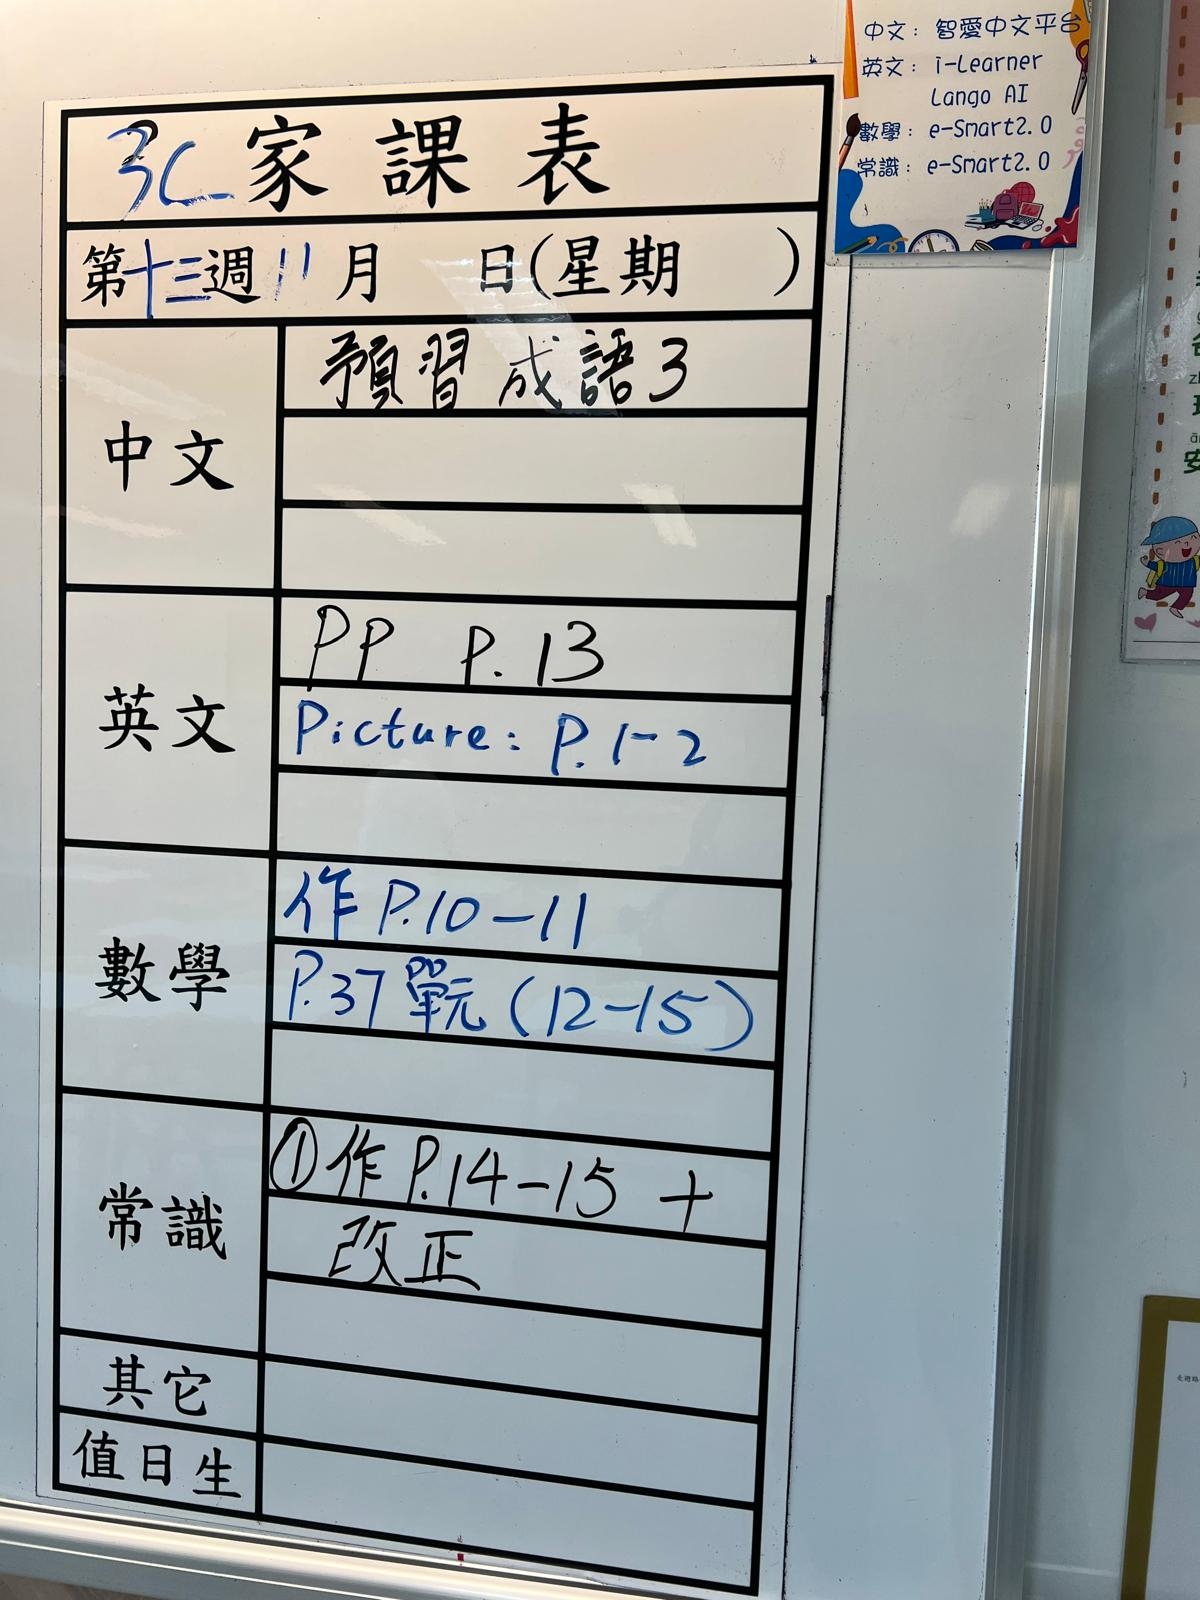 3C 家課表
第十三週 11月 日(星期 )
中文
預習 成語3
英文
PP P.13
Picture: P.1-2
數學
作 P.10-11
P.37 單元 (12-15)
常識
①作 P.14-15 +
改正
其它
值日生
中文：智愛中文平台
英文：i-Learner
Lango AI
數學：e-Smart2.0
常識：e-Smart2.0
安